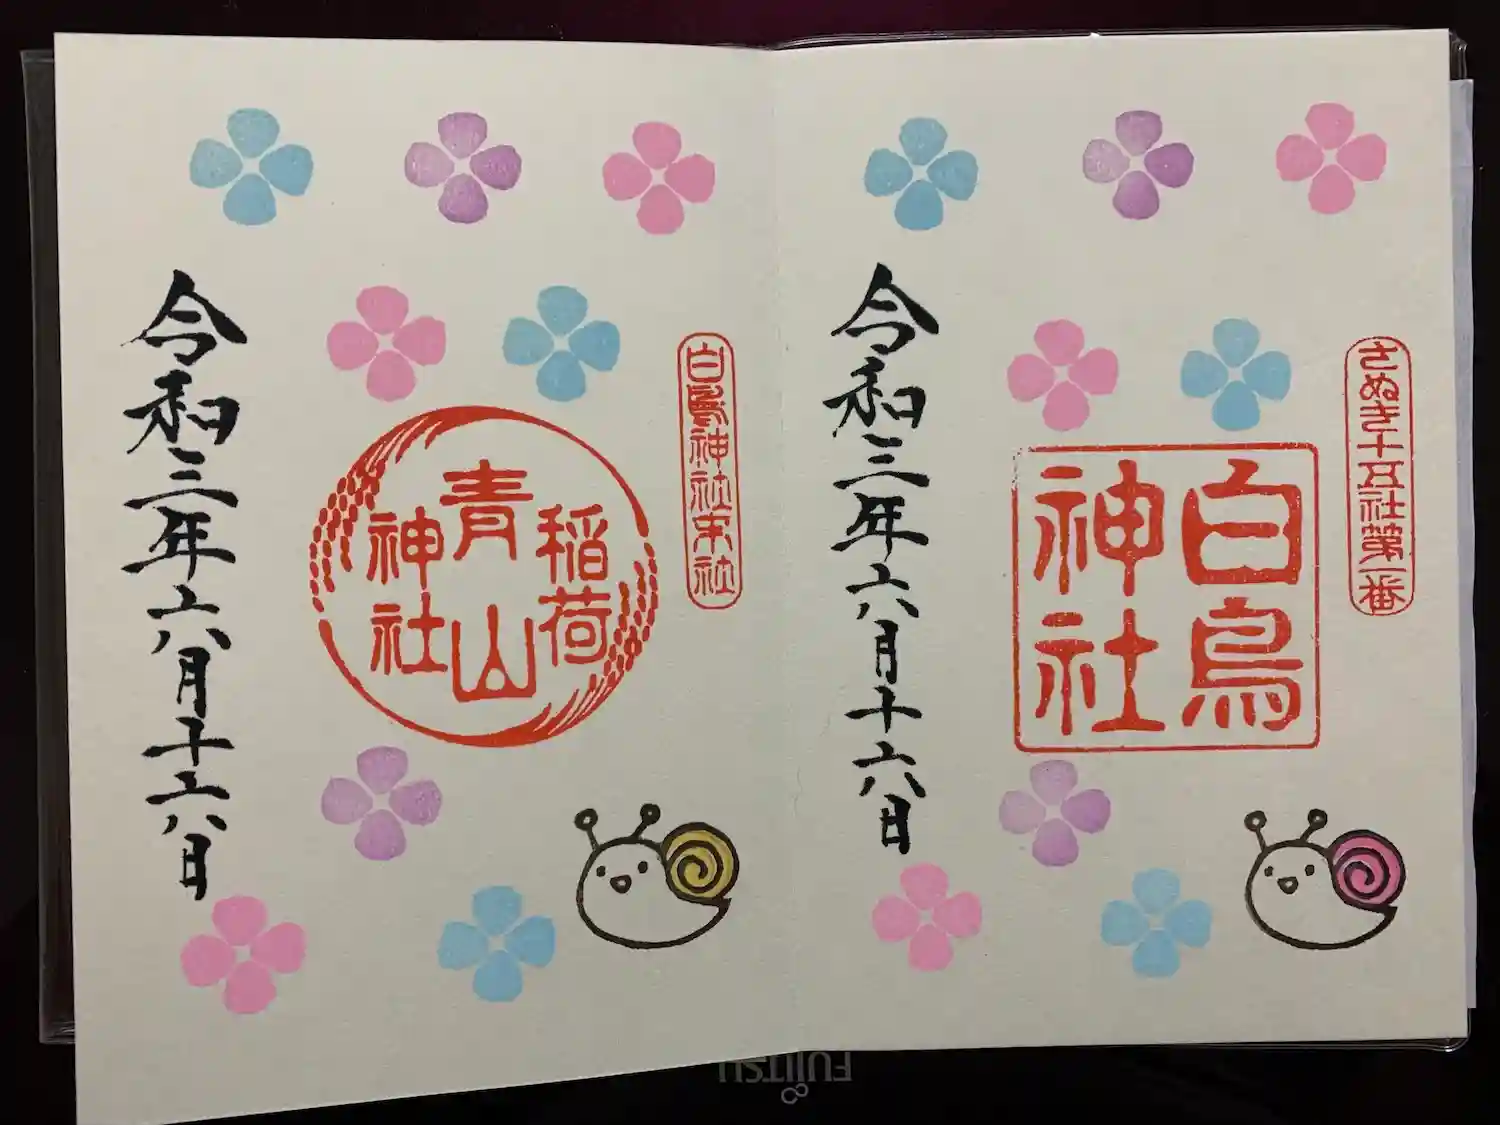 さぬき十五社第一番
白鳥
神社
令和三年六月十六日
白鳥神社末社
稲荷
青山
神社
令和三年六月十六日
FUJITSU